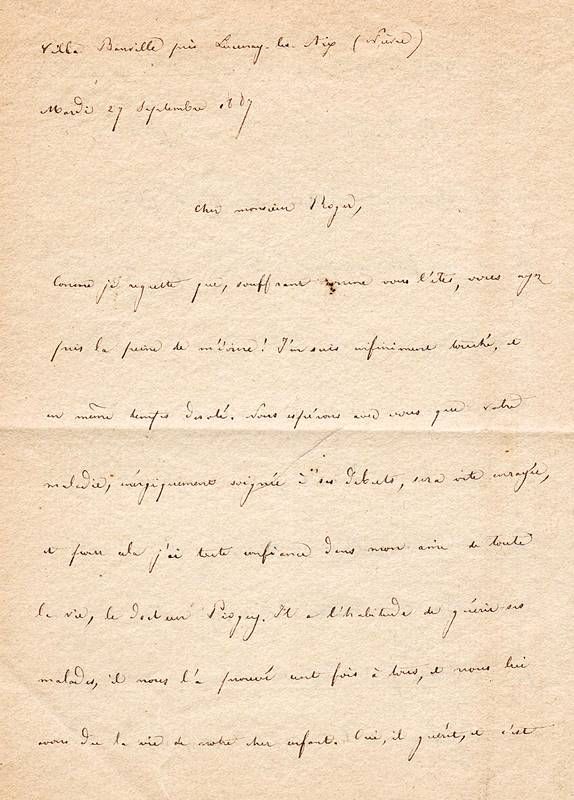 Villa Banville près Lucenay-les-Aix (Nièvre)
Mardi 27 Septembre 1887
Cher monsieur Roger,
Comme je regrette que, souffrant comme vous l'êtes, vous ayez
pris la peine de m'écrire! J'en suis infiniment touché, et
en même temps désolé. Nous espérons avec vous que votre
maladie, énergiquement soignée à ses débuts, sera vite enrayée,
et pour cela j'ai toute confiance dans mon ami de toute
la vie, le docteur Piogey. Il a l'habitude de guérir ses
malades, il nous l'a prouvé cent fois à tous, et nous lui
avons dû la vie de notre cher enfant. Oui, il guérit, et c'est